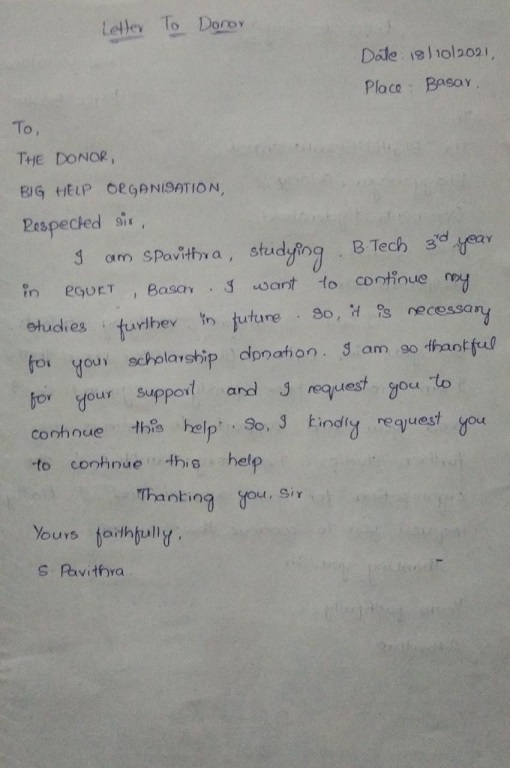 Letter To Donor
Date: 18/10/2021,
Place: Basar.
To,
THE DONOR,
BIG HELP ORGANISATION,
Respected sir,
I am SPavithra, studying B Tech 3rd year
in RGUKT, Basar. I want to continue my
studies further in future. So, it is necessary
for your scholarship donation. I am so thankful
for your support and I request you to
continue this help. So, I kindly request you
to continue this help
Thanking you, sir
Yours faithfully,
S. Pavithra